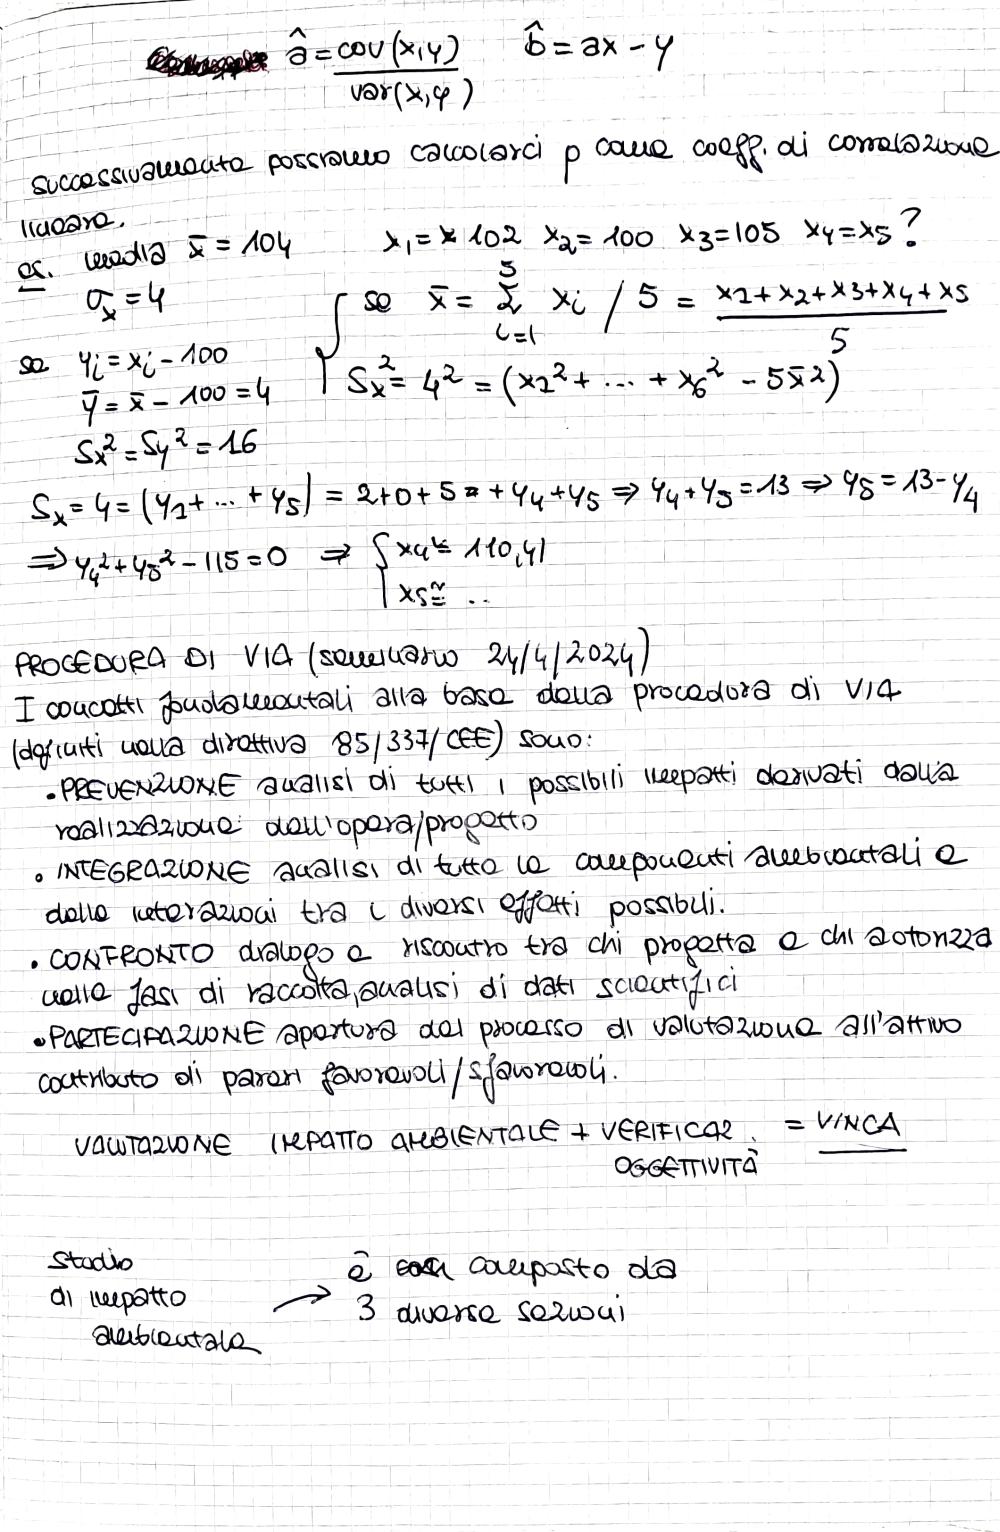 â = cov(x,y) / var(x,y)   b̂ = ax - y
successivamente possiamo calcolarci ρ come coeff. di correlazione
lineare.
es. media x̄ = 104   x₁ = 102 x₂ = 100 x₃ = 105 x₄ = x₅ ?
σₓ = 4   { se x̄ = Σ_{i=1}^{5} xᵢ / 5 = (x₁+x₂+x₃+x₄+x₅) / 5
se yᵢ = xᵢ - 100
Sₓ² = 4² = (x₁² + ... + x₆² - 5x̄²)
ȳ = x̄ - 100 = 4
Sₓ² = Sy² = 16
Sₓ = 4 = (y₁ + ... + y₅) = 2+0+5 + y₄+y₅ ⇒ y₄+y₅ = 13 ⇒ y₅ = 13-y₄
⇒ y₄² + y₅² - 115 = 0 ⇒ { x₄ ≅ 110,41
x₅ ≅ ..
PROCEDURA DI VIA (seminario 24/4/2024)
I concetti fondamentali alla base della procedura di VIA
(definiti nella direttiva 85/337/CEE) sono:
• PREVENZIONE analisi di tutti i possibili impatti derivati dalla
realizzazione dell'opera/progetto
• INTEGRAZIONE analisi di tutte le componenti ambientali e
delle interazioni tra i diversi effetti possibili.
• CONFRONTO dialogo e riscontro tra chi progetta e chi autorizza
nelle fasi di raccolta, analisi di dati scientifici
• PARTECIPAZIONE apertura del processo di valutazione all'attivo
contributo di pareri favorevoli/sfavorevoli.
VALUTAZIONE IMPATTO AMBIENTALE + VERIFICAR = VINCA
OGGETTIVITÀ
Studio
di impatto
ambientale
è composto da
3 diverse sezioni